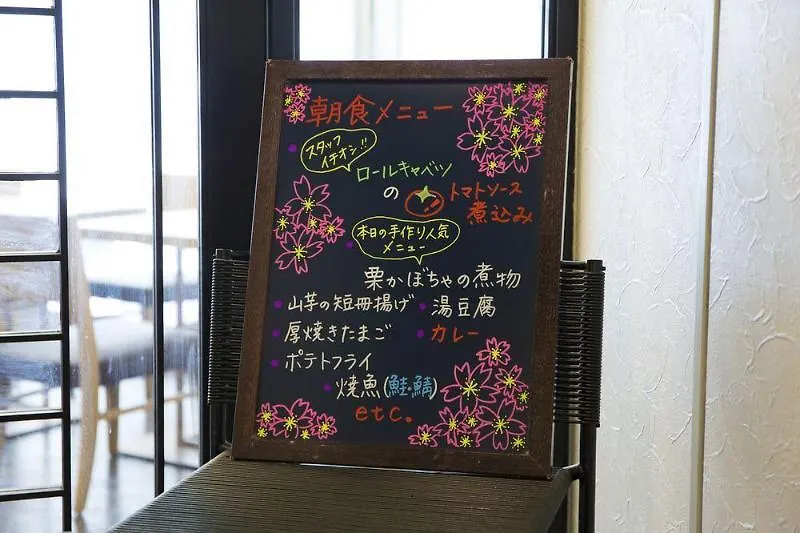 朝食メニュー
スタッフ
イチオシ!!
ロールキャベツ
の トマトソース
煮込み
本日の手作り人気
メニュー
栗かぼちゃの煮物
山芋の短冊揚げ 湯豆腐
厚焼きたまご カレー
ポテトフライ
焼魚(鮭・鯖)
etc.